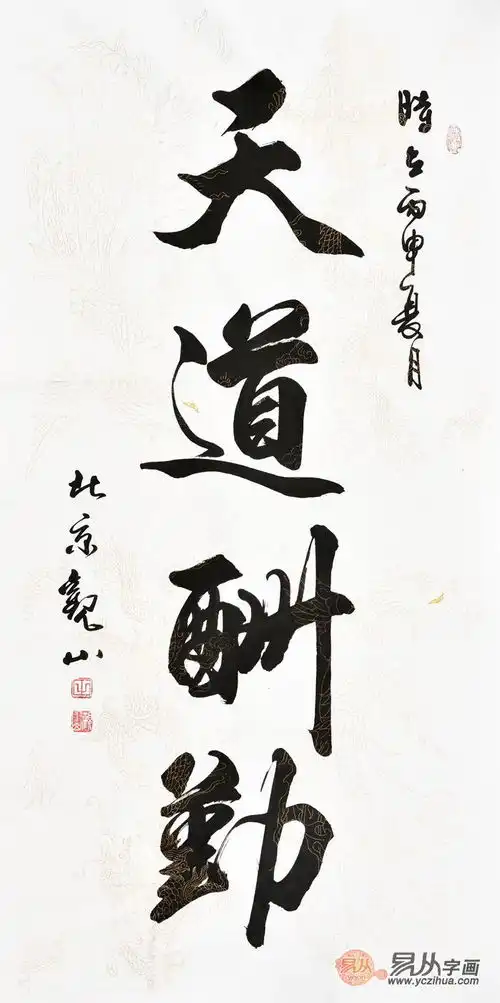 時在丙申夏月
天道酬勤
北京觀山
易从字画
www.yczihua.com